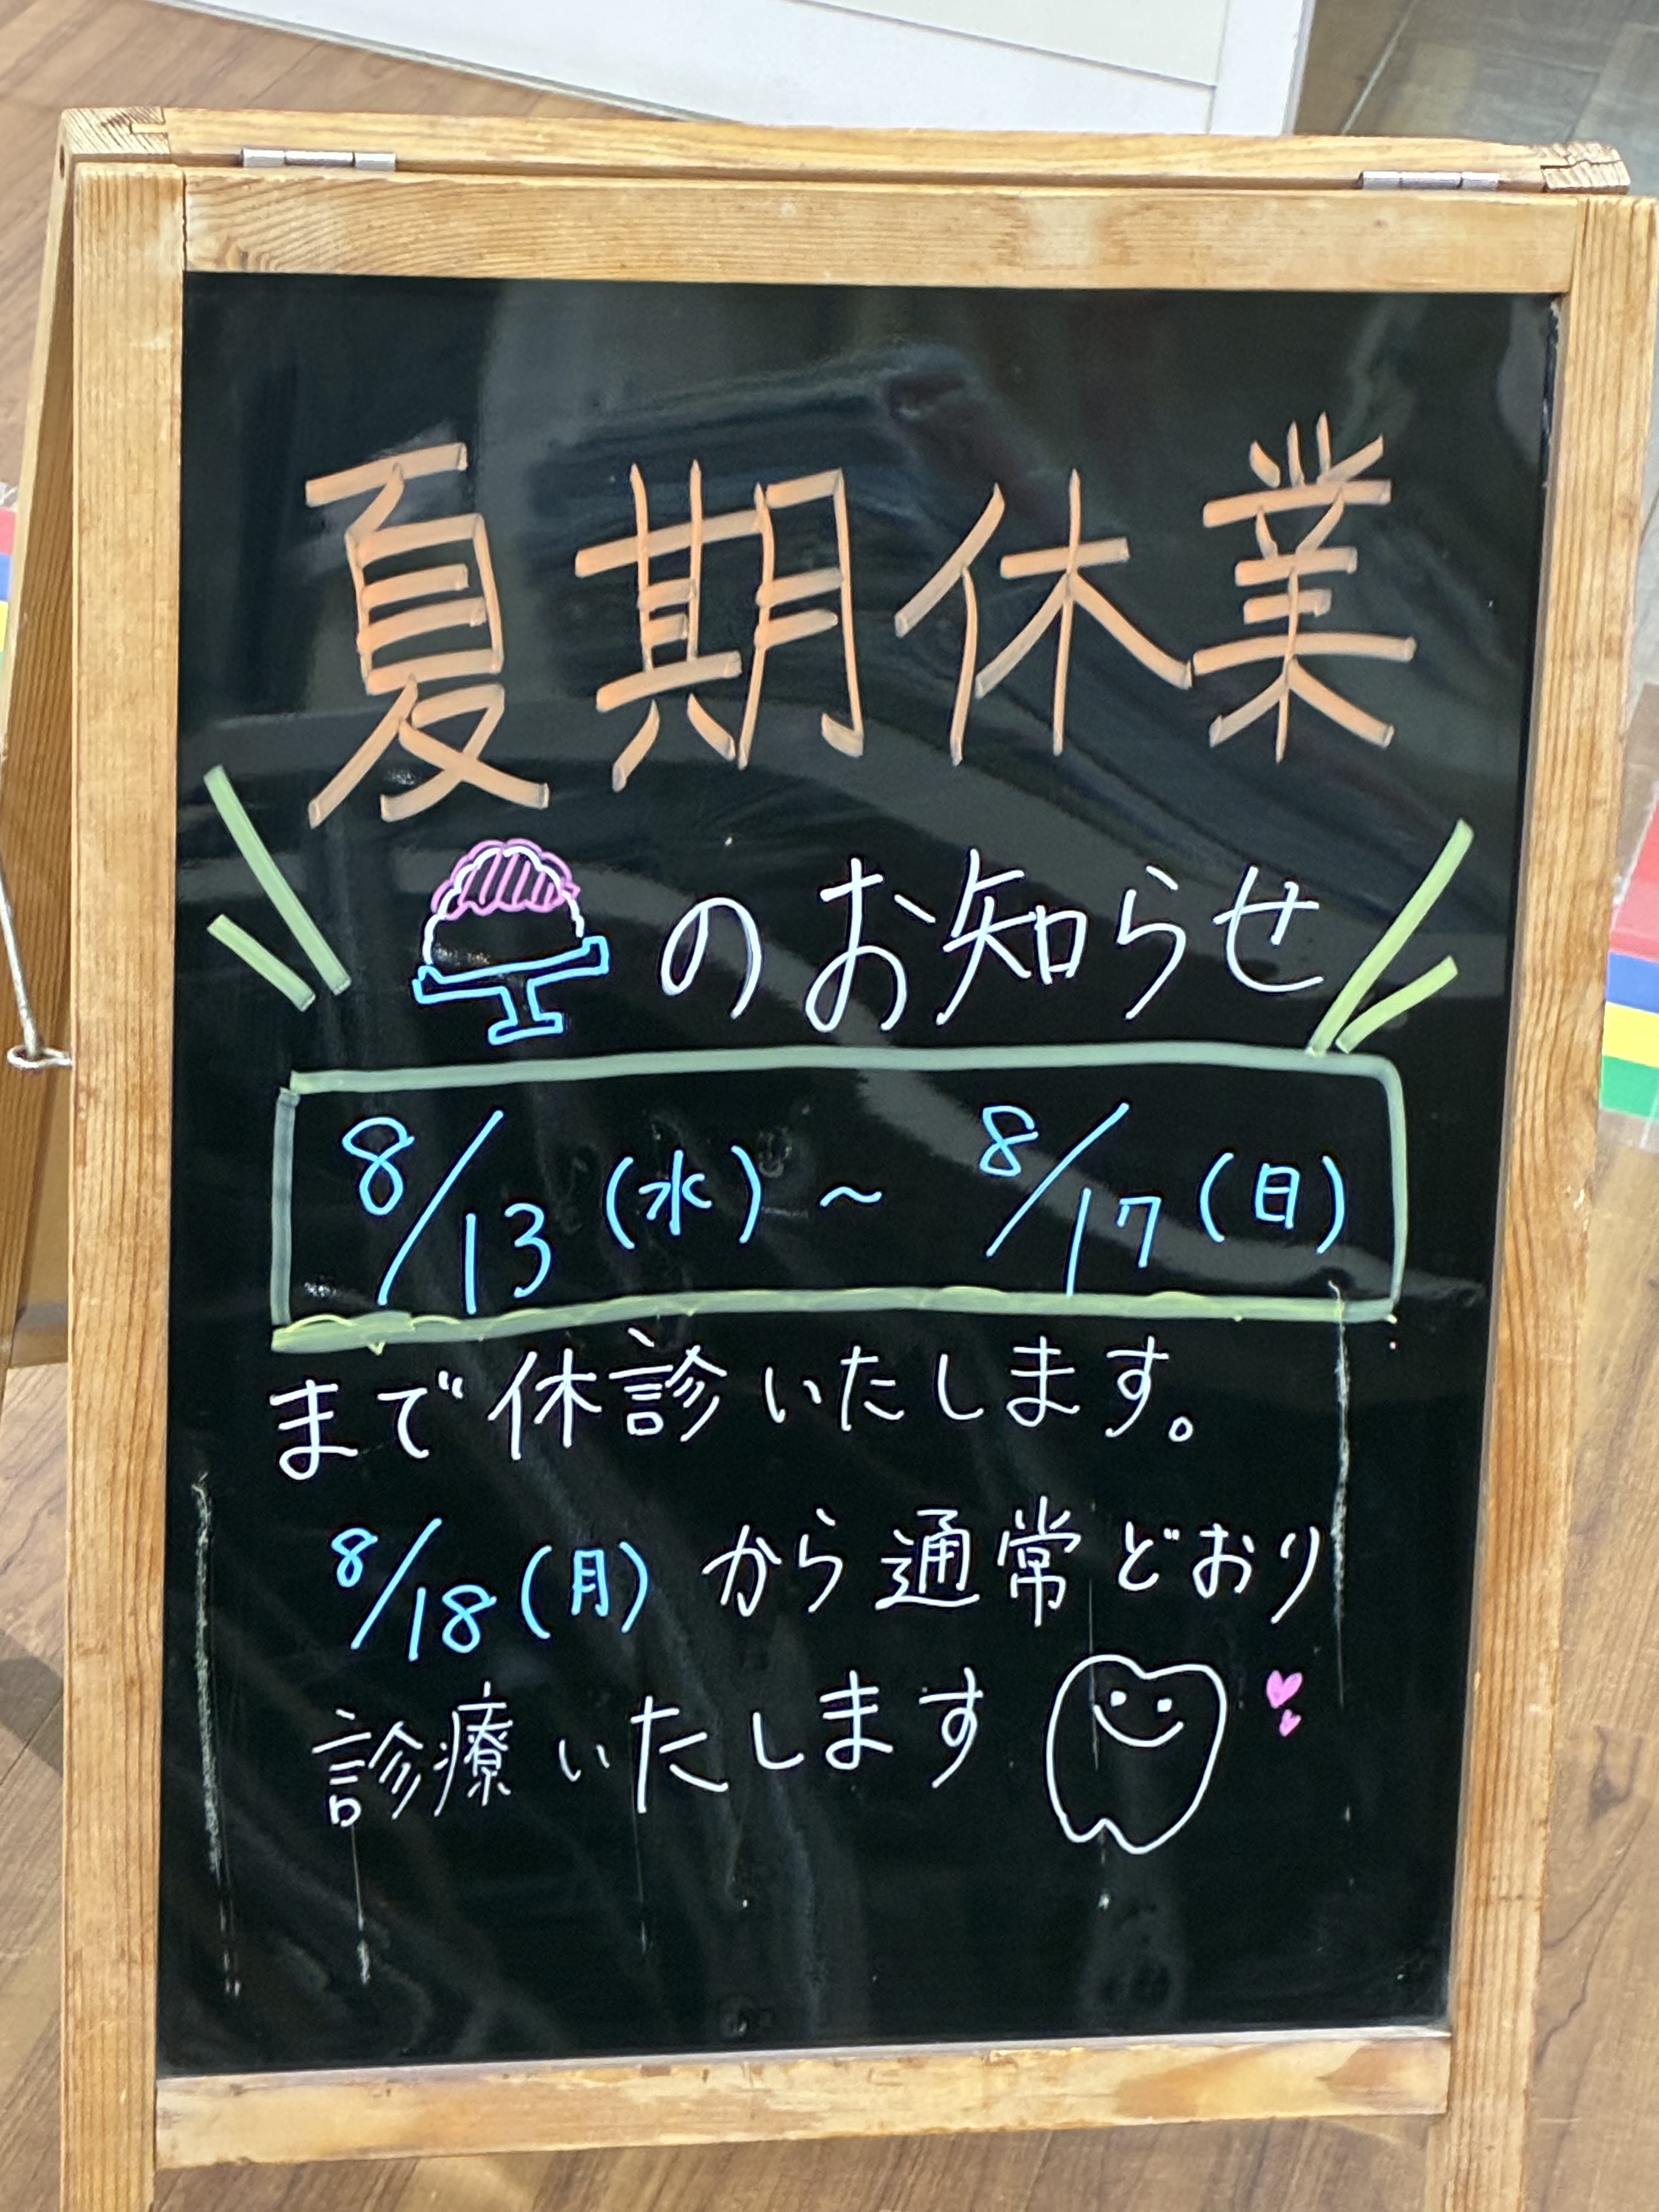 夏期休業
のお知らせ
8/13(水)~8/17(日)
まで休診いたします。
8/18(月)から通常どおり
診療いたします